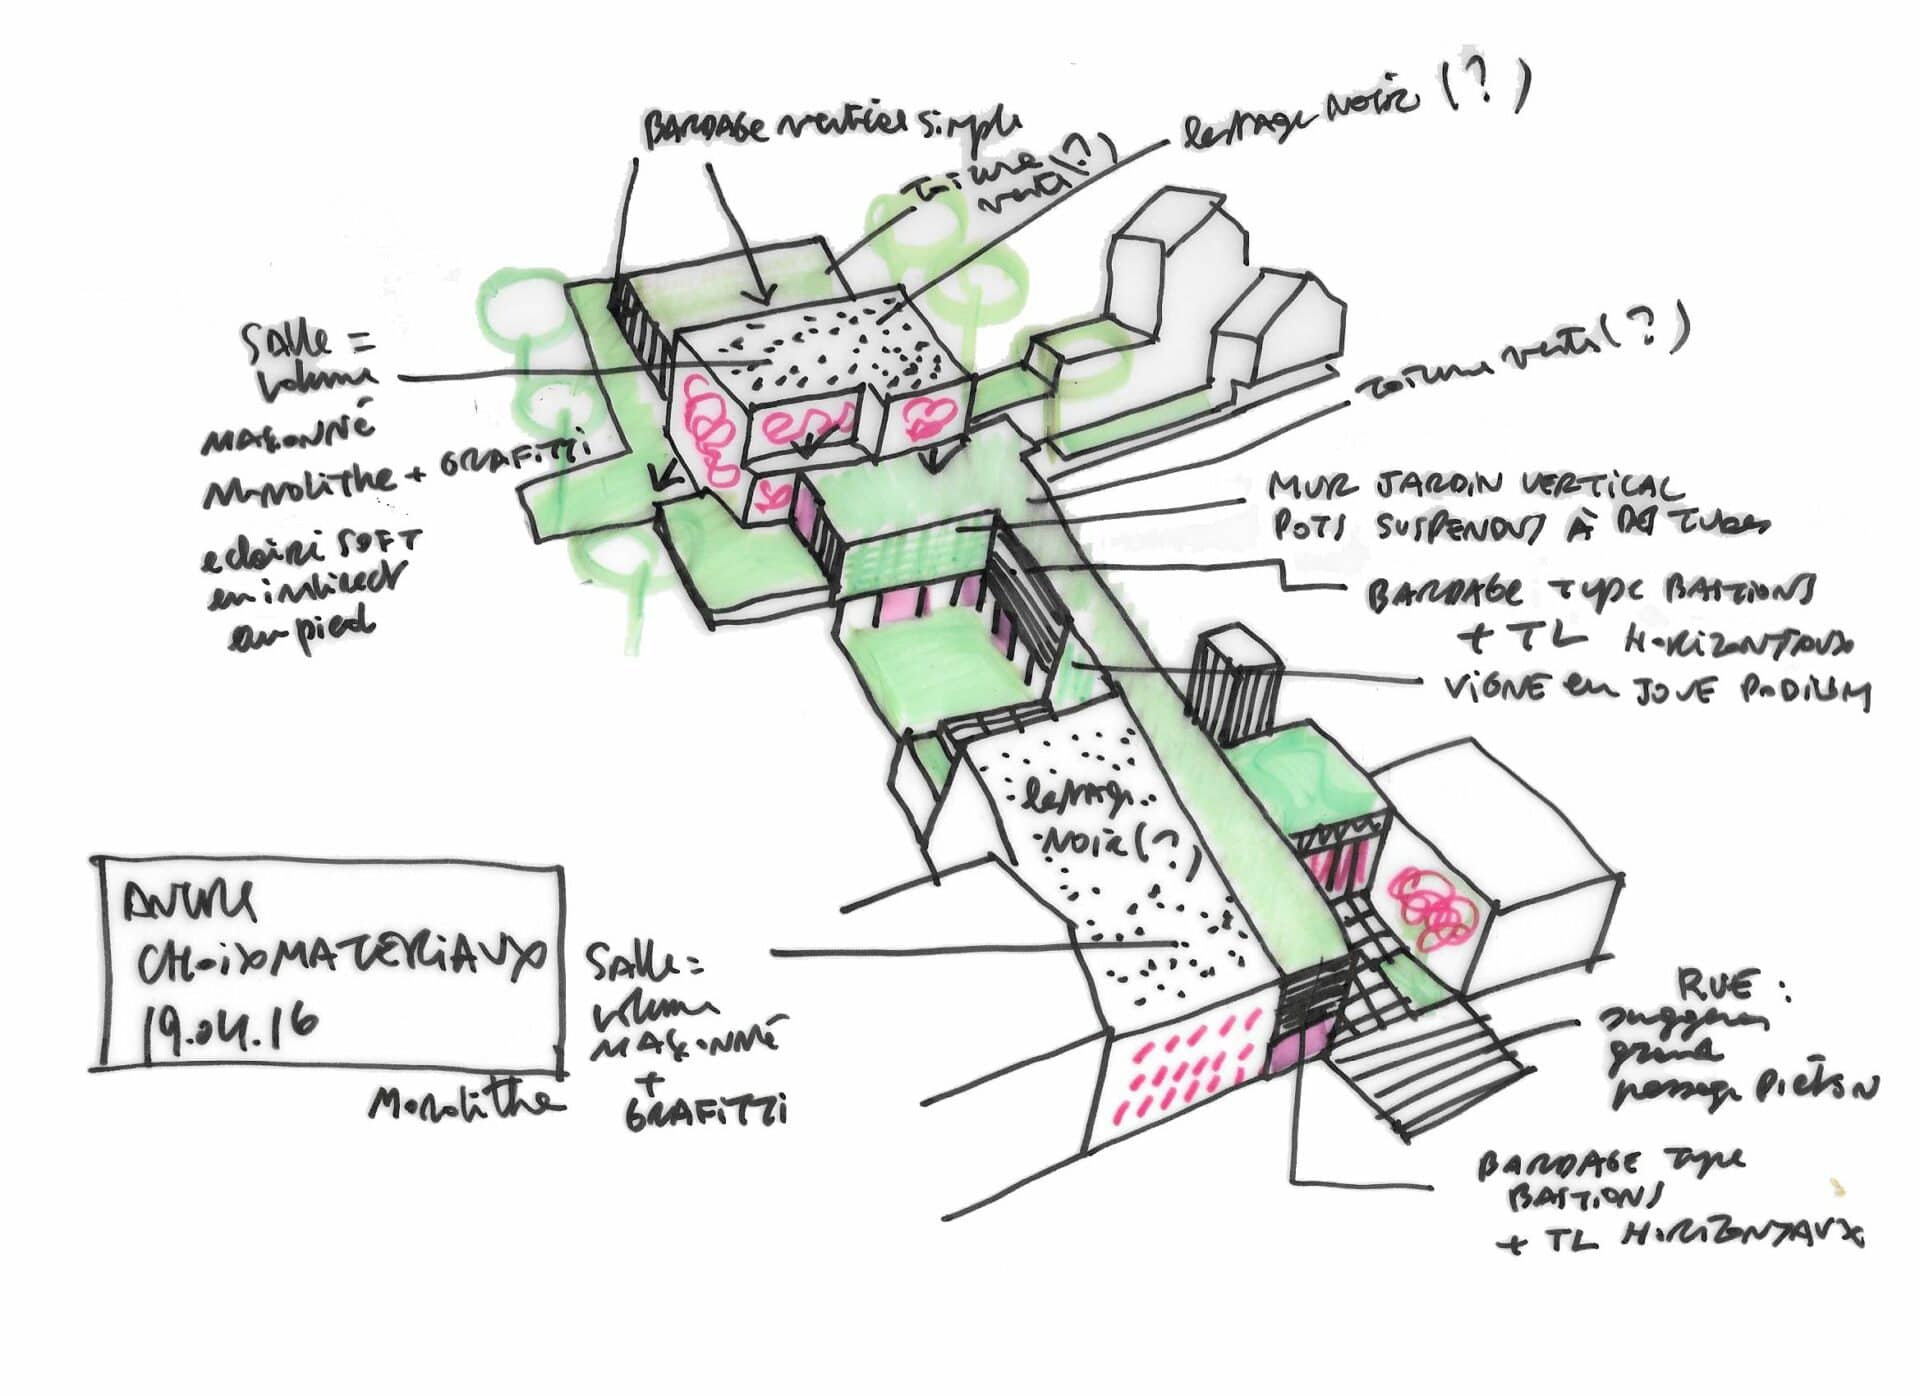 BARDAGE vertical simple
toiture
verte (?)
lestage NOIR (?)
SALLE =
volume
MAÇONNÉ
MONOLITHE + GRAFITTI
eclairé SOFT
en indirect
au pied
toiture verte (?)
MUR JARDIN VERTICAL
POTS SUSPENDUS À DES TUBES
BARDAGE TYPE BASTIONS
+ TL HORIZONTAUX
VIGNE en JOUE PODIUM
lestage
NOIR (?)
CHOIX MATERIAUX
19.04.16
MONOLITHE
SALLE =
volume
MAÇONNÉ
+
GRAFITTI
RUE :
suggerer
grand
passage PIÉTON
BARDAGE Type
BASTIONS
+ TL HORIZONTAUX